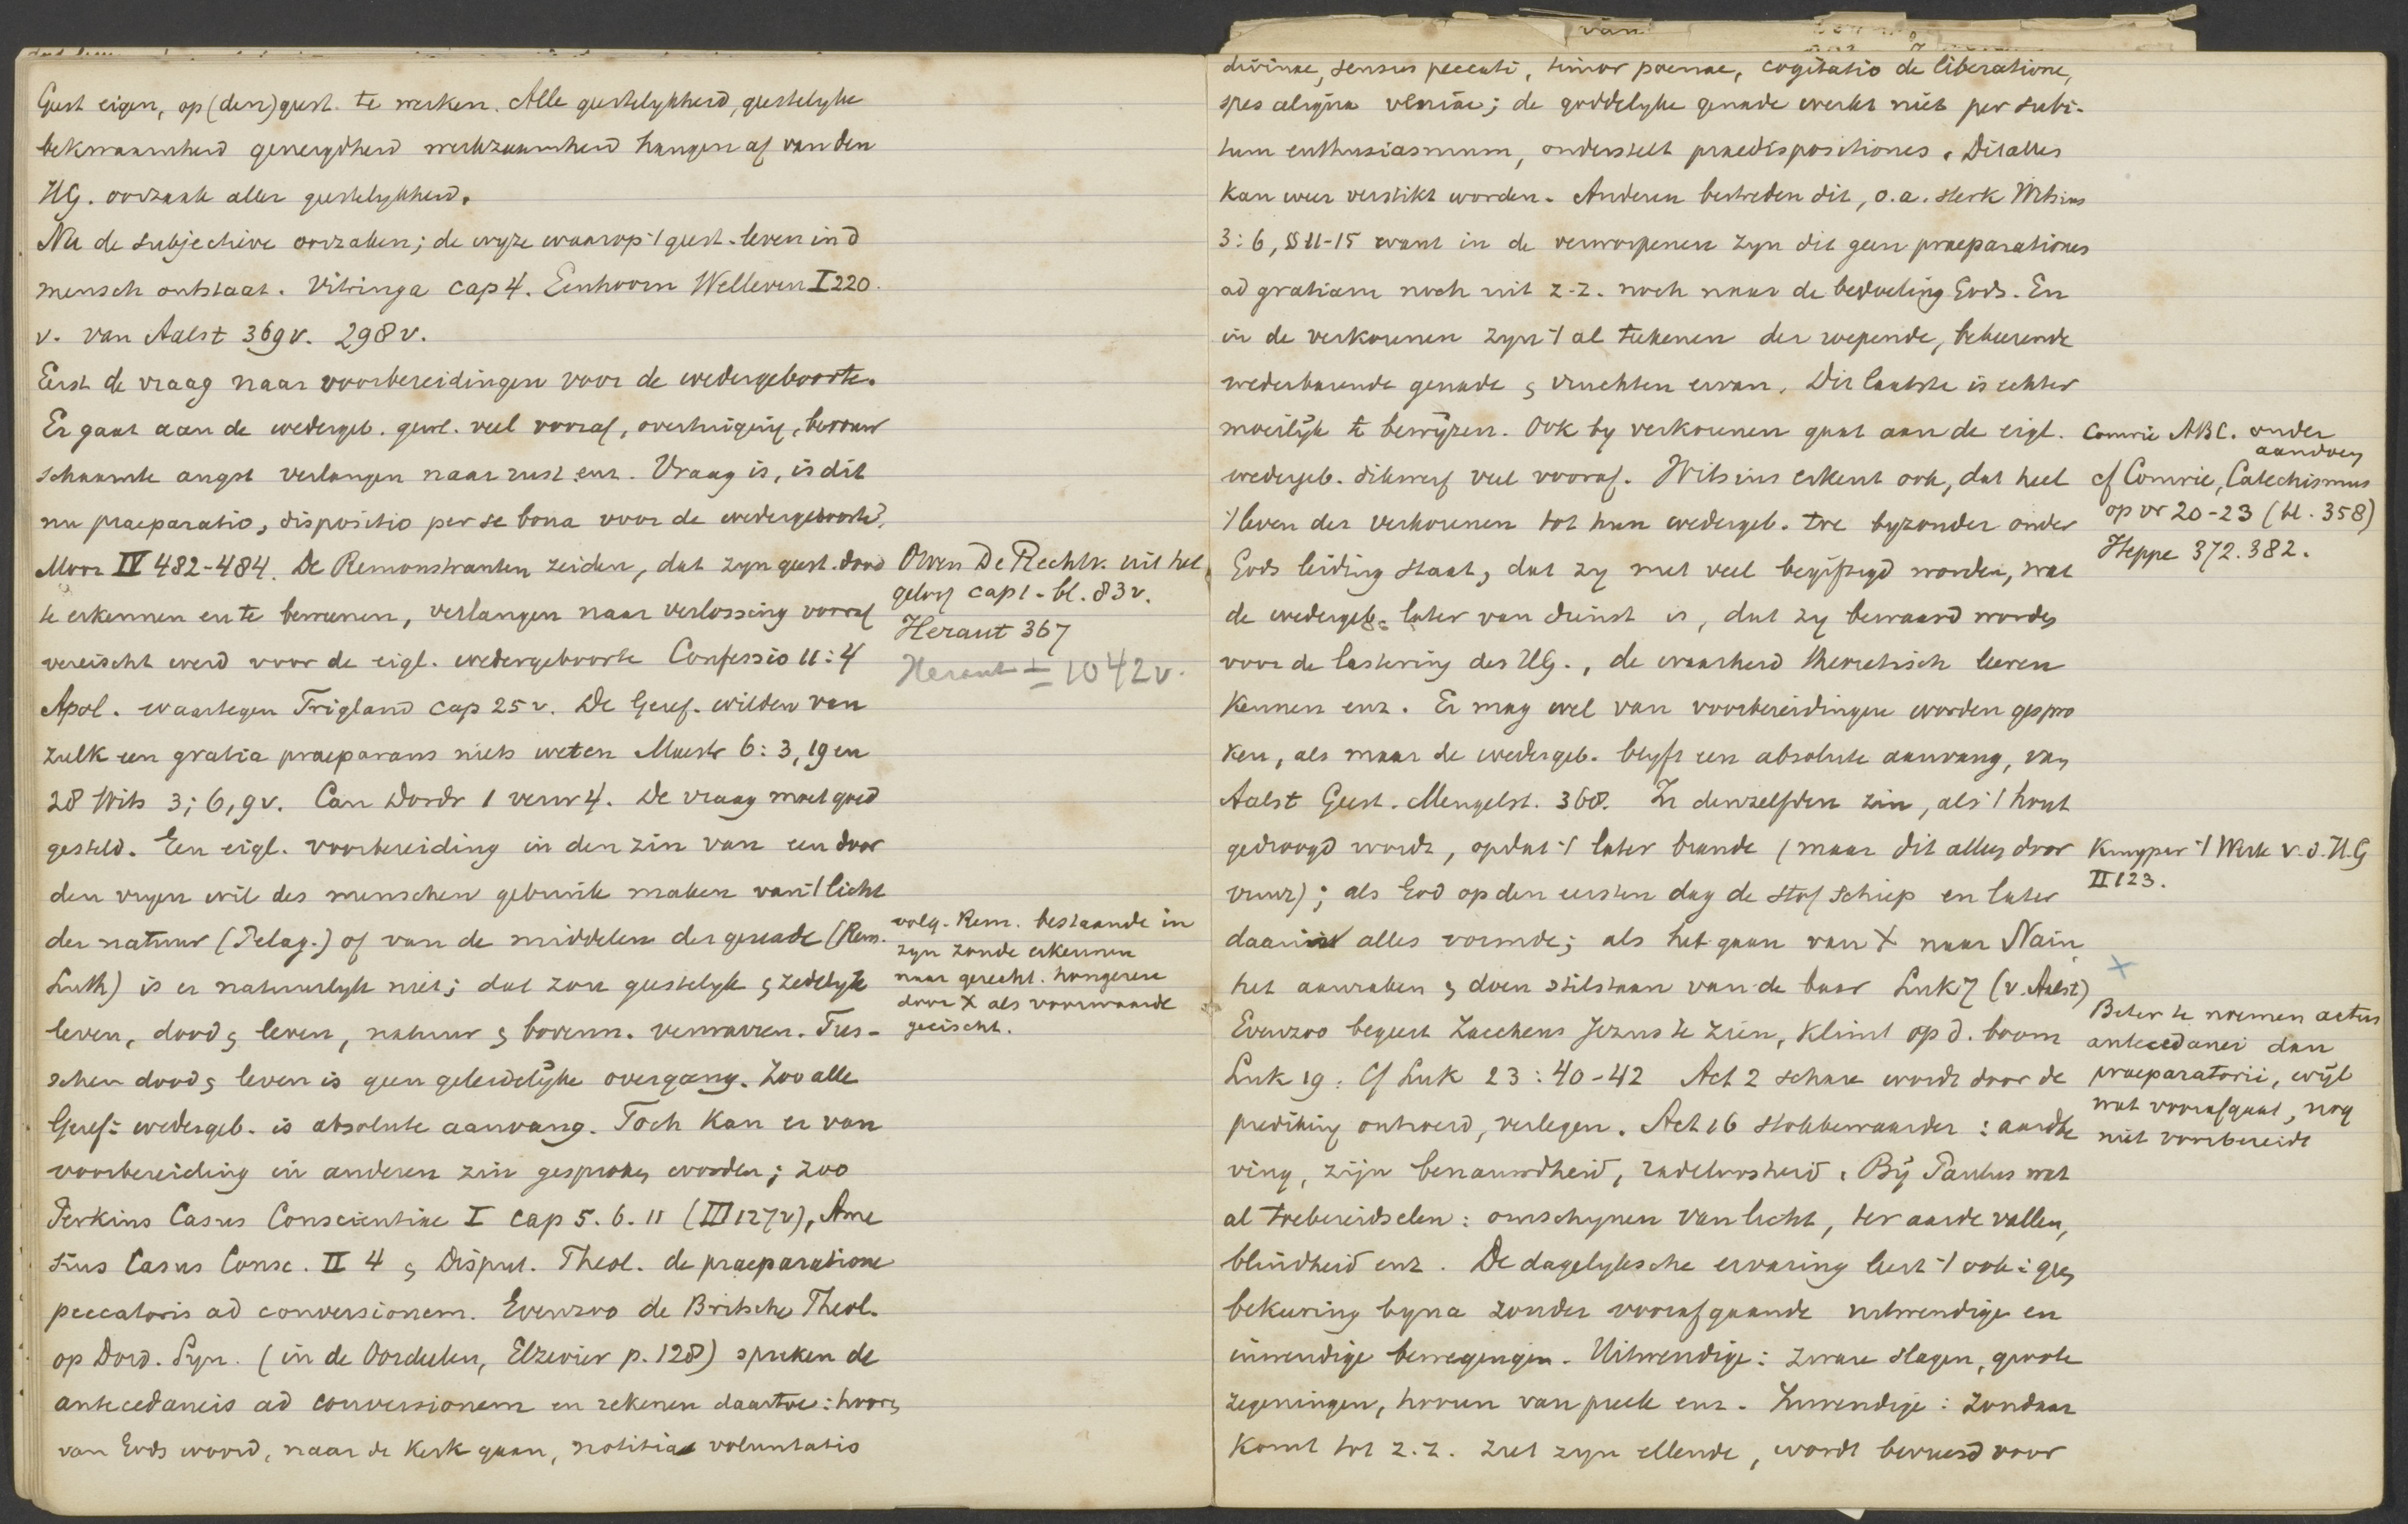 Geest eigen, op (den) geest te werken. Alle geestelykheid, geestelyke
bekwaamheid geneigdheid werkzaamheid hangen af van den
HG. oorzaak aller geestelykheid.
Nu de subjectieve oorzaken; de wyze waarop 't geest. leven in d
mensch ontstaat. Vitringa cap 4. Eenhoorn Welleven I 220.
v. van Aalst 369v. 298v.
Eerst de vraag naar voorbereidingen voor de wedergeboorte.
Er gaat aan de wedergeb. gew. veel vooraf, overtuiging, berouw
schaamte angst verlangen naar rust enz. Vraag is, is dit
nu praeparatio, dispositio per se bona voor de wedergeboorte?
Moor IV 482-484. De Remonstranten zeiden, dat zyn geest. dood
te erkennen en te beweenen, verlangen naar verlossing vooraf
vereischt werd voor de eigl. wedergeboorte Confessio 11:4
Apol. waartegen Trigland cap 25 v. De Geref. wilden van
zulk een gratia praeparans niets weten Maestr 6:3, 19 en
28 Wits 3;6,9v. Can Dordr 1 verw 4. De vraag moet goed
gesteld. Een eigl. voorbereiding in den zin van een door
den vryen wil des menschen gebruik maken van 't licht
der natuur (Pelag.) of van de middelen der genade (Rem.
Luth) is er natuurlyk niet; dat zou geestelyk & zedelyk
leven, dood & leven, natuur & bovenn. verwarren. Tus-
schen dood & leven is geen geleidelyke overgang. Zoo alle
Geref: wedergeb. is absolute aanvang. Toch kan er van
voorbereiding in anderen zin gesproken worden; zoo
Perkins Casus Conscientiae I cap 5. 6. 11 (III 127v), Ame
sius Casus Consc. II 4 & Disput. Theol. de praeparatione
peccatoris ad conversionem. Evenzoo de Britsche Theol.
op Dord. Syn. (in de Oordeelen, Elzevier p. 128) spreken de
antecedaneis ad conversionem en rekenen daartoe: hooren
van Gods woord, naar de kerk gaan, notitia voluntatis
Owen De Rechtv. uit het
geloof cap 1. bl. 83v.
Heraut 367
Heraut ± 1042v.
volg. Rem. bestaande in
zyn zonde erkennen
naar gerecht. hongeren
door X als voorwaarde
geeischt.
divinae, sensus peccati, timor poenae, cogitatio de liberatione,
spes aliqua veniae; de goddelyke genade werkt niet per subi-
tum enthusiasmum, onderstelt praedispositiones. Dit alles
kan weer verstikt worden. Anderen bestreden dit, o.a. sterk Witsius
3:6, §§ 11-15 want in de verworpenen zyn dit geen praeparationes
ad gratiam noch uit z.z. noch naar de bedoeling Gods. En
in de verkorenen zyn 't al teekenen der roepende, bekeerende
wederbarende genade & vruchten ervan. Dit laatste is echter
moeilyk te bewyzen. Ook by verkorenen gaat aan de eigl.
wedergeb. dikwerf veel vooraf. Witsius erkent ook, dat heel
't leven der verkorenen tot hun wedergeb. toe byzonder onder
Gods leiding staat, dat zy met veel begiftigd worden, wat
de wedergeb. later van dienst is, dat zy bewaard worden
voor de lastering des HG., de waarheid theoretisch leeren
kennen enz. Er mag wel van voorbereidingen worden gespro
ken, als maar de wedergeb. blyft een absolute aanvang, van
Aalst Geest. Mengelst. 368. In denzelfden zin, als 't hout
gedroogd wordt, opdat 't later brande (maar dit alles door
vuur); als God op den eersten dag de stof schiep en later
daaruit alles vormde; als het gaan van X naar Nain,
het aanraken & doen stilstaan van de baar Luk 7 (v. Aalst)
Evenzoo begeert Zaccheus Jezus te zien, klimt op d. boom
Luk 19. Cf Luk 23:40-42 Act 2 schare wordt door de
prediking ontroerd, verlegen. Act 16 stokbewaarder: aardbe
ving, zijn benauwdheid, radeloosheid. Bij Paulus wat
al toebereidselen: omschynen van licht, ter aarde vallen,
blindheid enz. De dagelyksche ervaring leert 't ook: geen
bekeering byna zonder voorafgaande uitwendige en
inwendige bewegingen. Uitwendige: zware slagen, groote
zegeningen, hooren van preek enz. Inwendige: zondaar
komt tot z.z. ziet zyn ellende, wordt bevreesd voor
Comrie ABC. onder
aandoen
cf Comrie, Catechismus
op vr 20-23 (bl. 358)
Heppe 372. 382.
Kuyper 't Werk v. d. H.G
II 123.
X
Beter te noemen actus
antecedanei dan
praeparatorii, wijl
wat voorafgaat, nog
niet voorbereidt
van